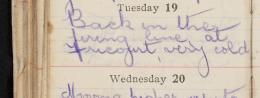 Tuesday 19
Back in the
firing line at
Fricourt, very cold
Wednesday 20